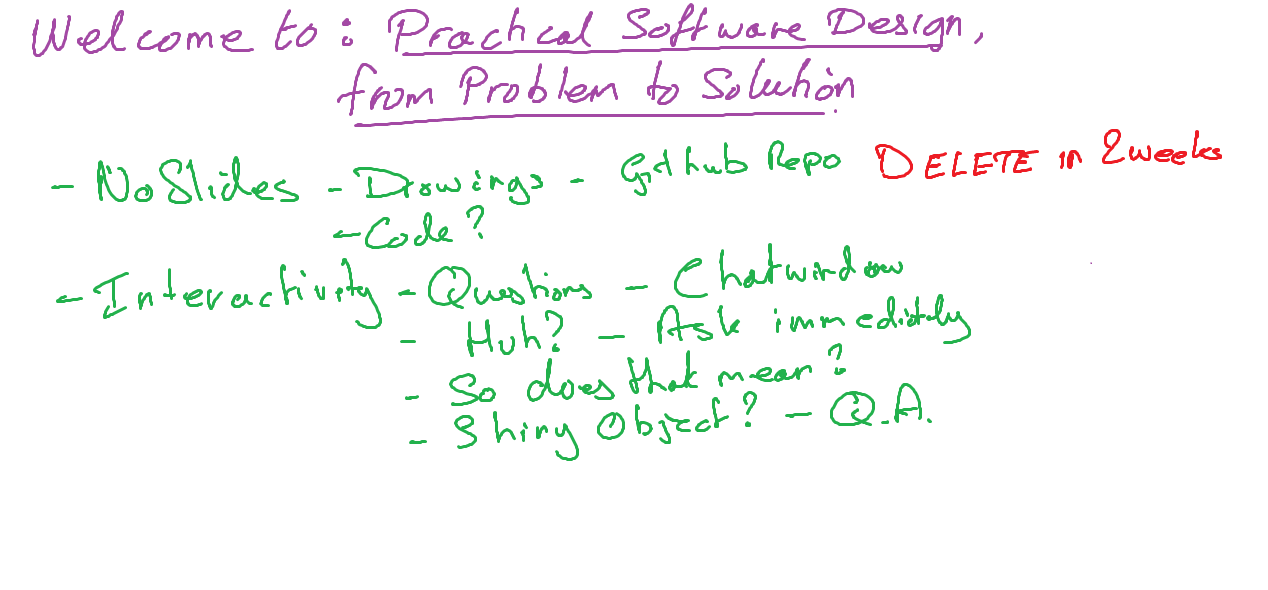 Welcome to: Practical Software Design,
from Problem to Solution
- No Slides - Drawings - Github Repo DELETE in 2 weeks
- Code?
- Interactivity - Questions - Chatwindow
- Huh? - Ask immediatly
- So does that mean?
- Shiny Object? - Q.A.